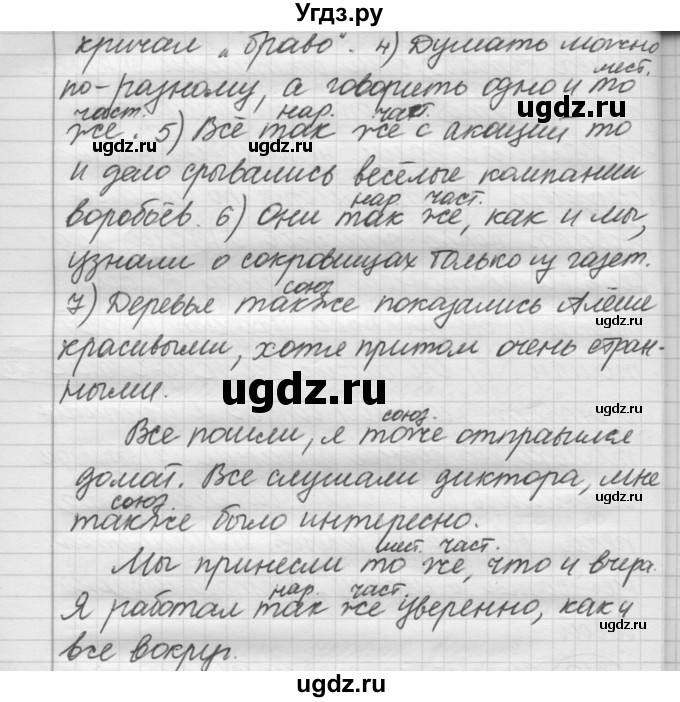 Угдз.ру
кричал „браво“. 4) Думать можно
мест.
по-разному, а говорить одно и то
част. нар. част.
же. 5) Всё так же с акаций то
ugdz.ru ugdz.ru ugdz.ru
и дело срывались весёлые компании
нар. част.
воробьёв. 6) Они так же, как и мы,
узнали о сокровищах только из газет.
союз
7) Деревья также показались Алёше
ugdz.ru
красивыми, хотя притом очень стран-
ugdz.ru
ными.
союз.
Все пошли, я тоже отправился
домой. Все слушали диктора, мне
ugdz.ru
союз.
также было интересно.
мест. част.
Мы принесли то же, что и вчера.
ugdz.ru нар. част.
Я работал так же уверенно, как и
ugdz.ru
все вокруг.
ugdz.ru